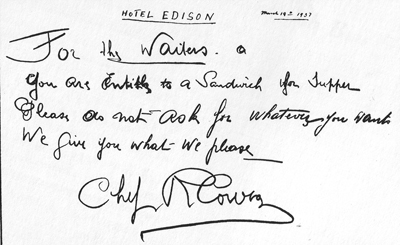 HOTEL EDISON
March 19th 1937
For the Waiters. a
you are Entitle to a Sandwich for Supper
Please do not Ask for whatever you want
We Give you what we please
Chef